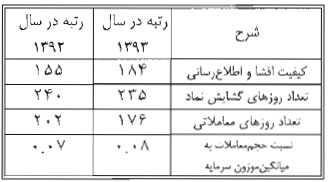 شرح	رتبه در سال ۱۳۹۳	رتبه در سال ۱۳۹۲
کیفیت افشا و اطلاع‌رسانی	۱۸۴	۱۵۵
تعداد روزهای گشایش نماد	۲۳۵	۲۴۰
تعداد روزهای معاملاتی	۱۷۶	۲۰۲
نسبت حجم‌معاملات به میانگین‌موزون سرمایه	۰.۰۸	۰.۰۷